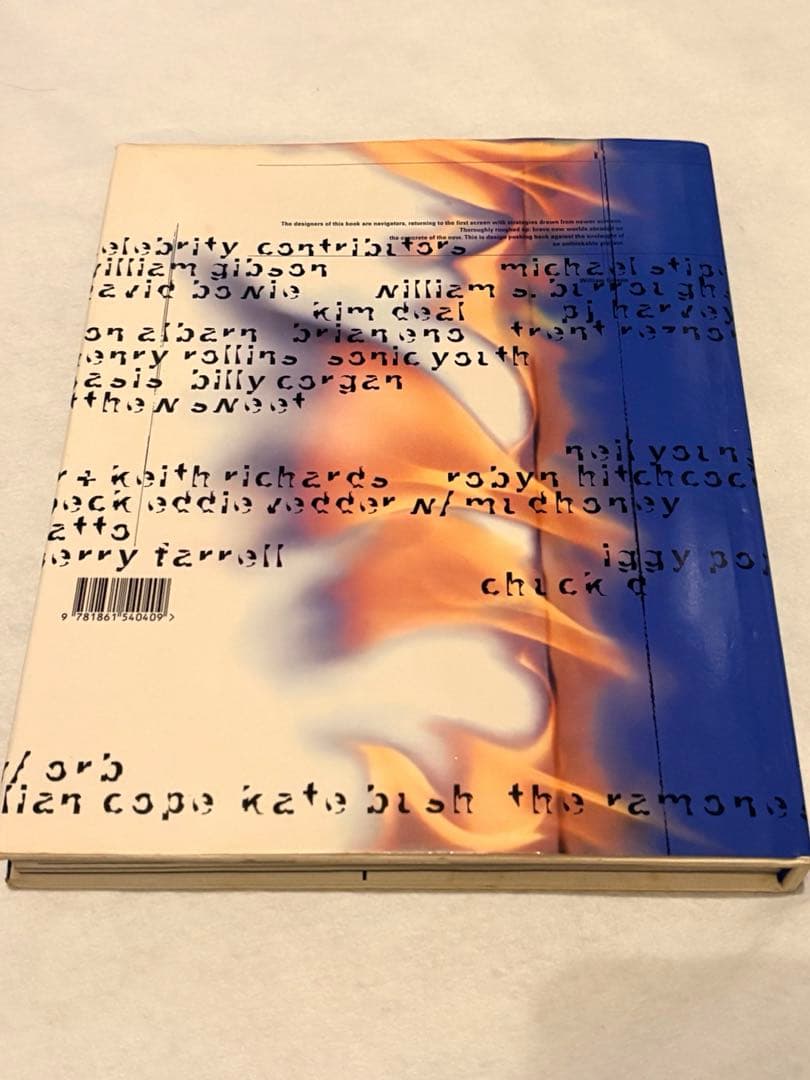 The designers of this book are navigators, returning to the first screen with strategies drawn from newer screens.
Thoroughly roughed up: brave new worlds abraded on
the concrete of the now. This is design pushing back against the onslaught of
an unthinkable present
elebrity contributors
illiam gibson michael stip
avid bowie william s. burrough
kim deal pj harvey
on albarn brian eno trent rezno
enry rollins sonic youth
asis billy corgan
tthew sweet
neil youn
r + keith richards robyn hitchcoc
eck eddie vedder w/ mudhoney
atto
erry farrell iggy pop
chuck d
9 781861 540409 >
/ orb
lian cope kate bush the ramones